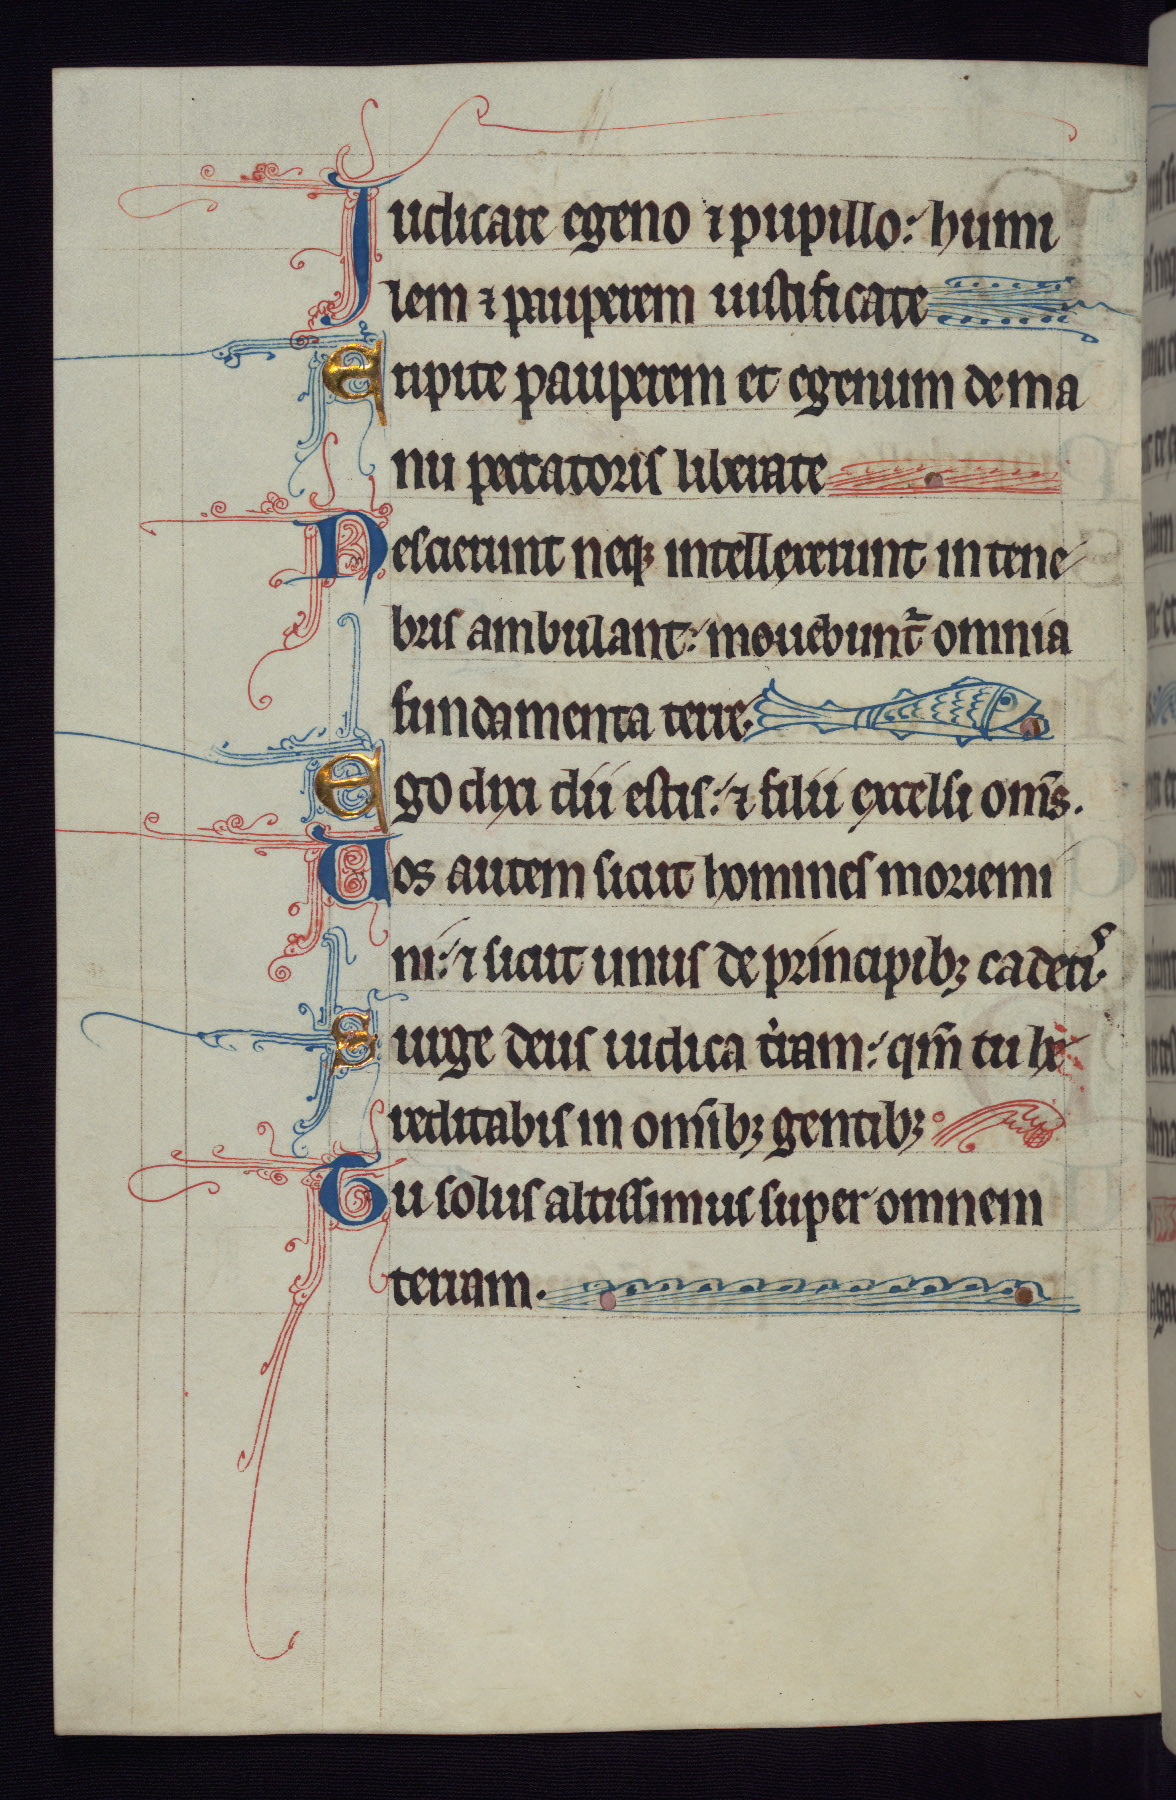 Iudicate egeno ⁊ pupillo: humi
lem ⁊ pauperem iustificate
Eripite pauperem et egenum de ma
nu peccatoris liberate
Nescierunt neqꝫ intellexerunt in tene
bris ambulant: mouebunt᷑ omnia
fundamenta terre.
Ego dixi dii estis: ⁊ filii excelsi om̄s.
Uos autem sicut homines moriemi
ni: ⁊ sicut unus de principibꝫ cadetis.
Surge deus iudica t̾ram: qm̄ tu he
reditabis in om̄ibꝫ gentibꝫ
Tu solus altissimus super omnem
terram.